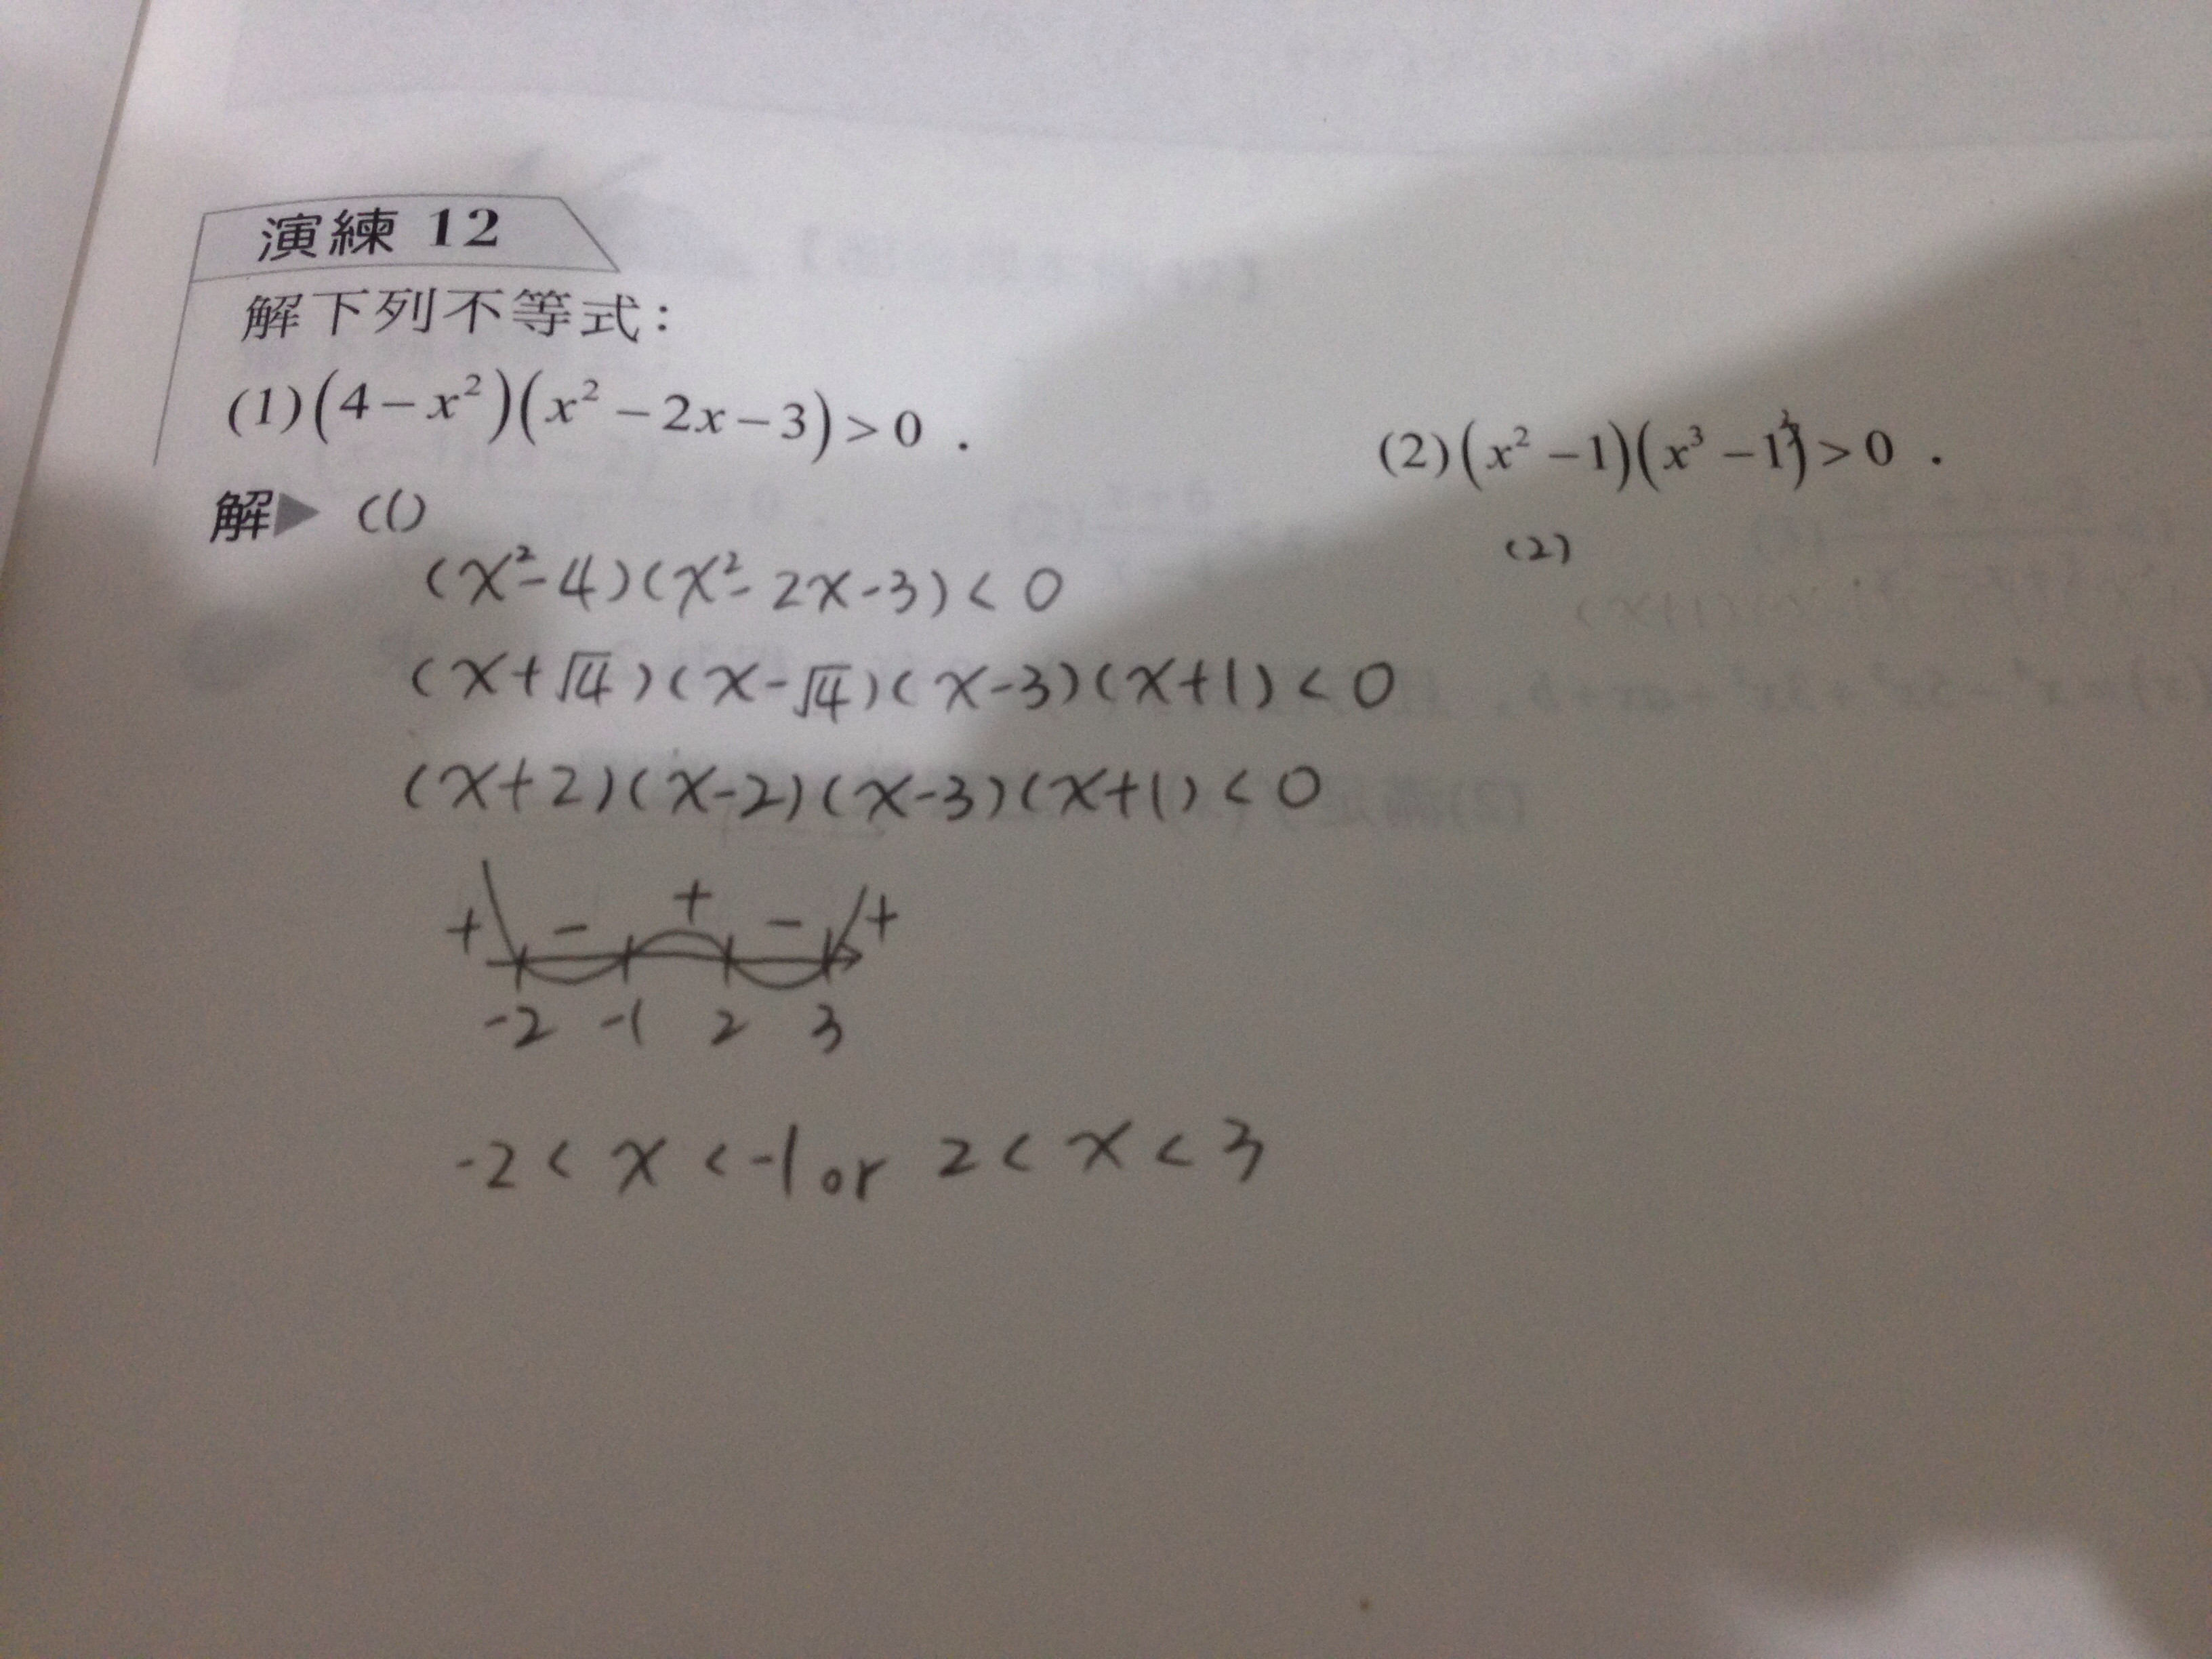 演練 12
解下列不等式：
(1)(4－x²)(x²－2x－3)＞0．
(2)(x²－1)(x³－1)＞0．
解▶ (1)
(x²-4)(x²-2x-3)<0
(x+√4)(x-√4)(x-3)(x+1)<0
(x+2)(x-2)(x-3)(x+1)<0
+ - + - +
-2 -1 2 3
-2<x<-1 or 2<x<3
(2)